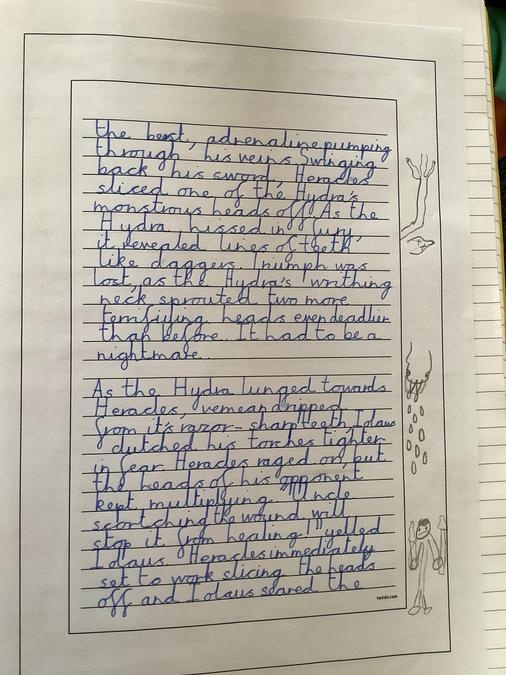 the beast, adrenaline pumping
through his veins. Swinging
back his sword, Heracles
sliced one of the Hydra's
monstrous heads off. As the
Hydra hissed in fury,
it revealed lines of teeth
like daggers. Triumph was
lost, as the Hydra's writhing
neck sprouted two more
terrifiying heads even deadlier
than before. It had to be a
nightmare.
As the Hydra lunged towards
Heracles, vemean dripped
from it's razor-sharp teeth, Iolaus
clutched his torches tighter
in fear. Heracles raged on, but
the heads of his opponent
kept multiplying. "Uncle
scortching the wound will
stop it from healing!" yelled
Iolaus. Heracles immediately
set to work slicing the heads
off and Iolaus seared the
twinkl.com